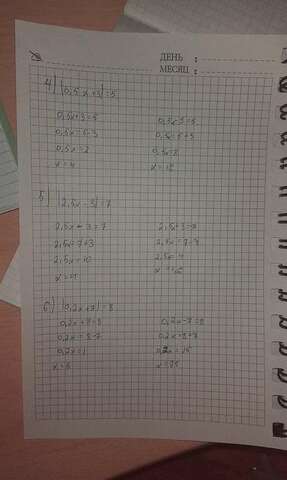 ДЕНЬ :
МЕСЯЦ :
4) |0,5x+3|=5
0,5x+3=5
0,5x=5-3
0,5x=2
x=4
0,5x-3=5
0,5x=5+3
5) |2,5x-3|=7
2,5x-3=7
2,5x=7+3
2,5x=10
x=4
2,5x+3=7
2,5x=7-3
2,5x=4
6) |0,2x+7|=8
0,2x+7=8
0,2x=8-7
0,2x=1
x=5
0,2x-7=8
0,2x=8+7
0,2x=15
x=75